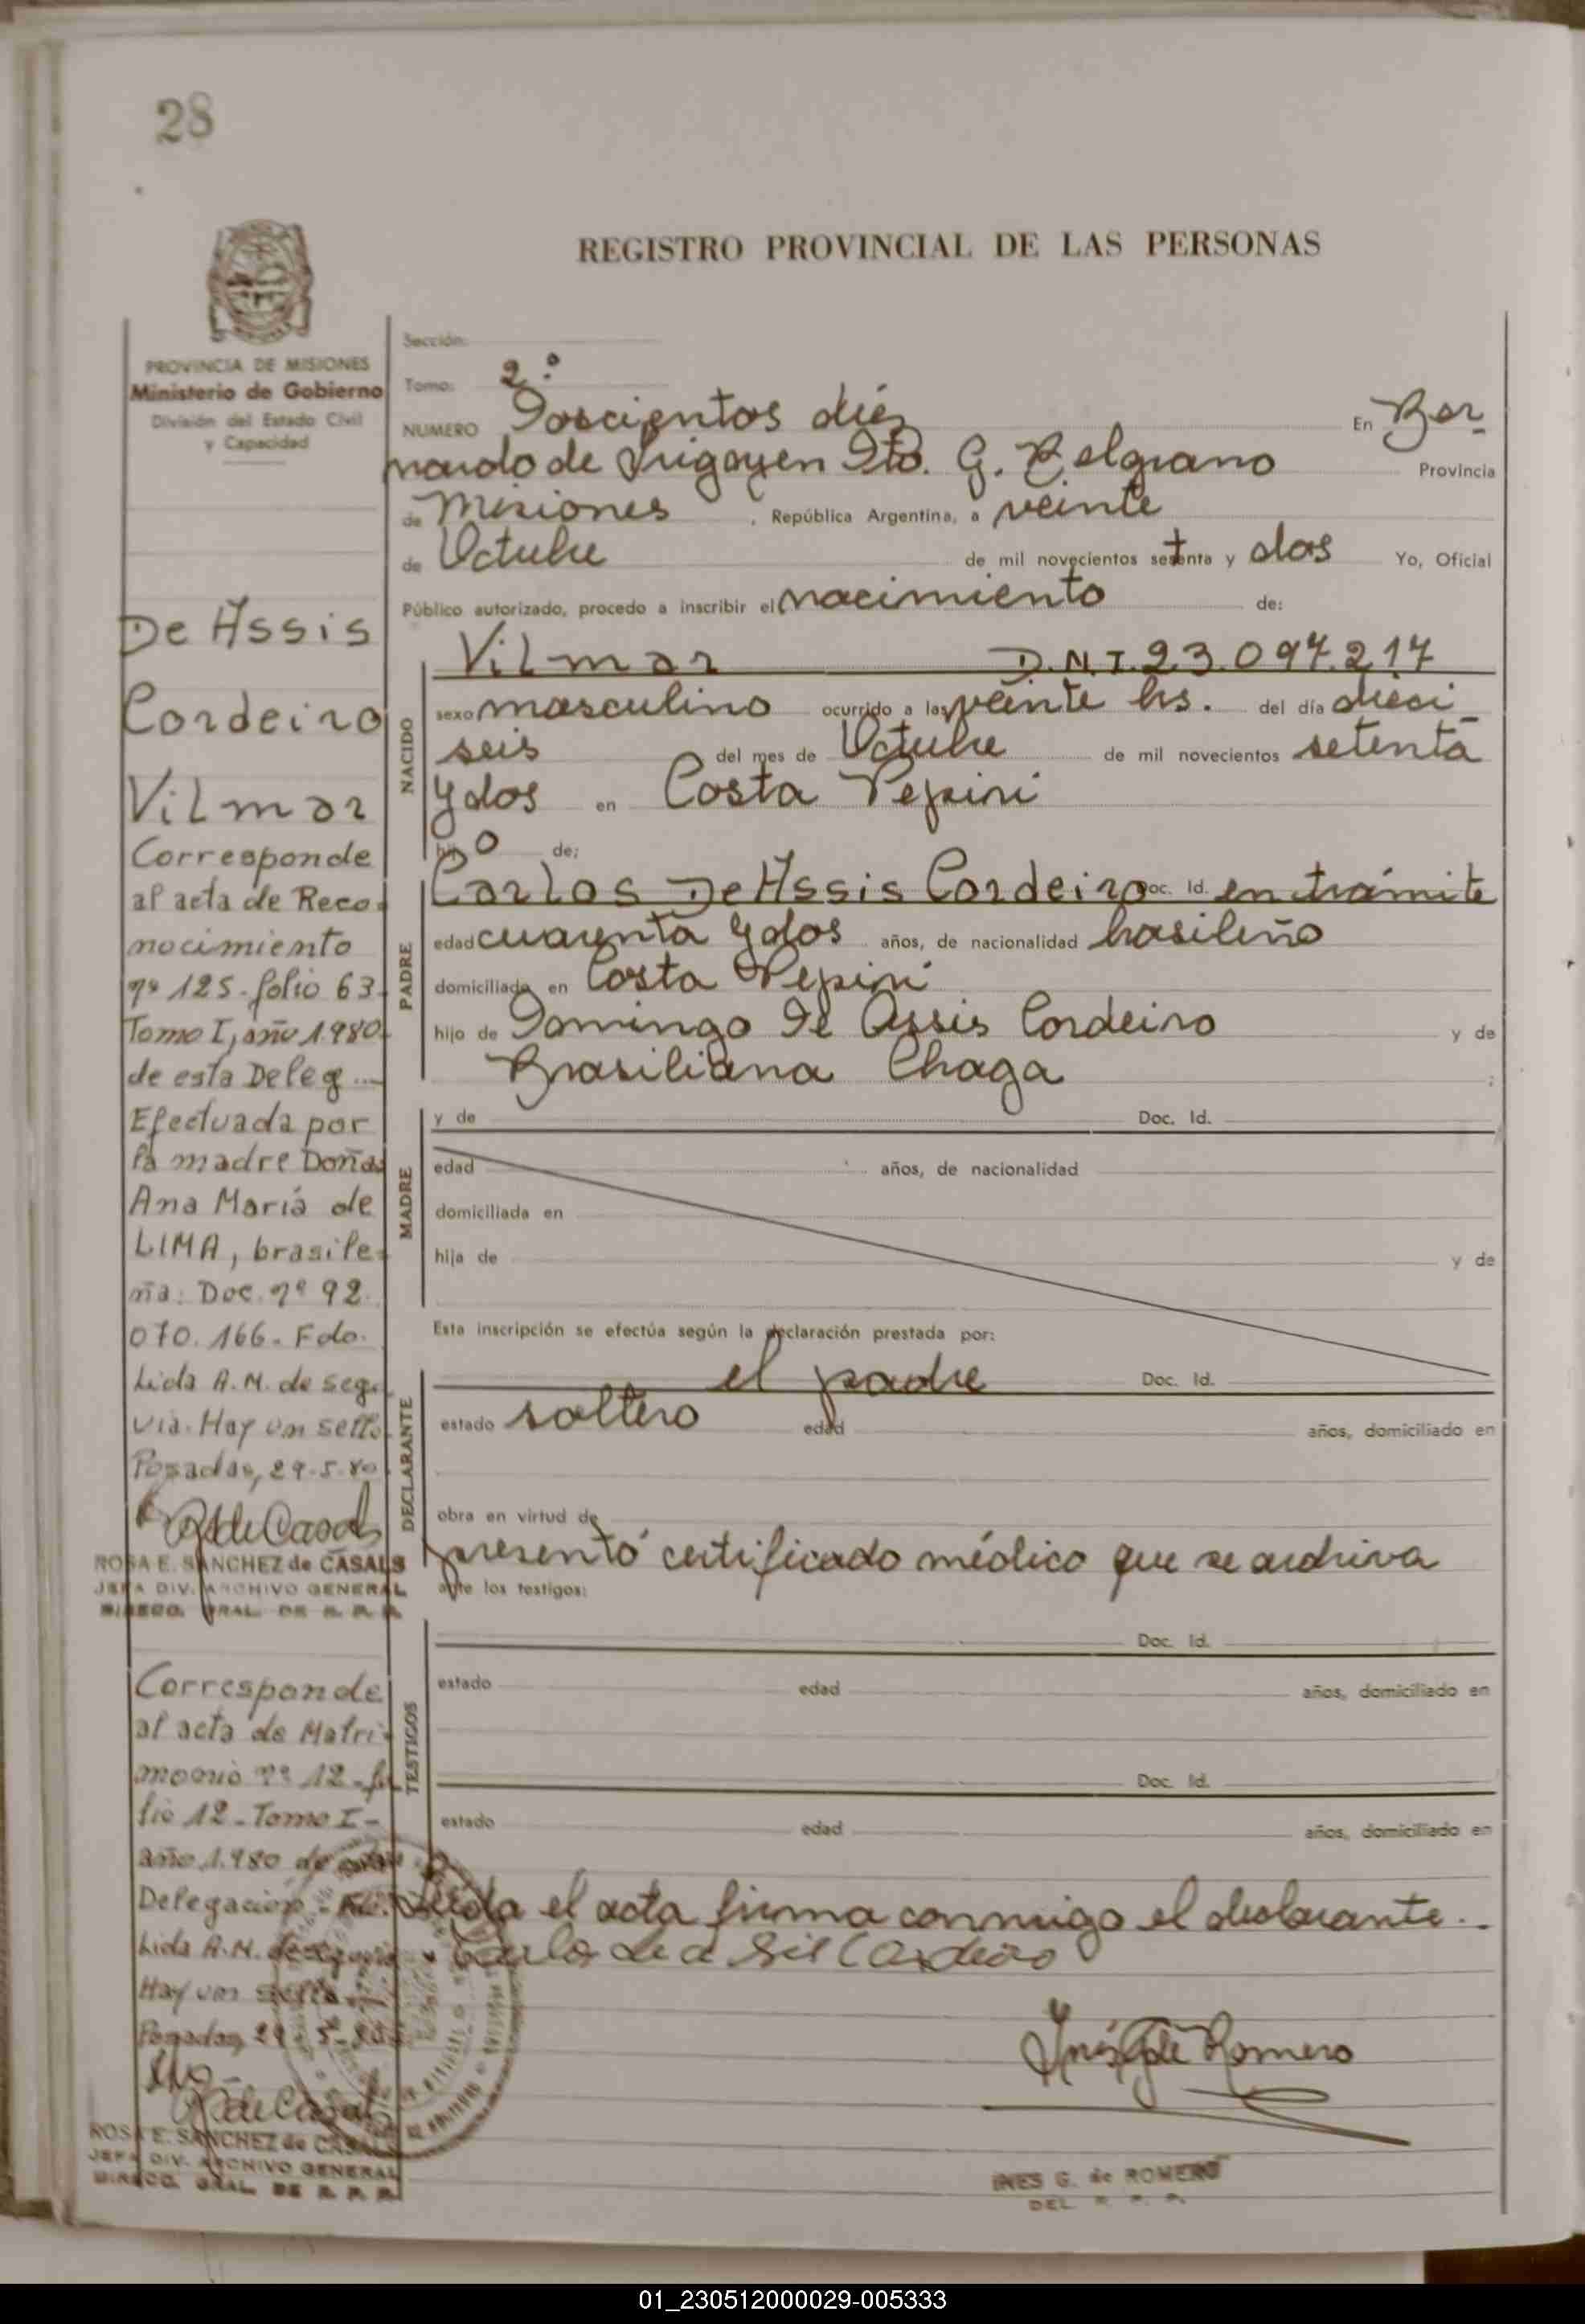 28
REGISTRO PROVINCIAL DE LAS PERSONAS
PROVINCIA DE MISIONES
Ministerio de Gobierno
División del Estado Civil
y Capacidad
De Assis
Cordeiro
Vilmar
Corresponde
al acta de Reco-
nocimiento
nº 125-folio 63-
Tomo I, año 1.980
de esta Deleg...-
Efectuada por
la madre Doña
Ana María de
LIMA, brasile-
ña: Doc. nº 92.
070.166. Fdo.
Lida A.M. de Sego-
via. Hay un sello
Posadas, 29-5-80
R S de Casals
ROSA E. SANCHEZ de CASALS
JEFA DIV. ARCHIVO GENERAL
DIRECC. GRAL. DE R. P. P.
Corresponde
al acta de Matri-
monio nº 12-fo
lio 12-Tomo I-
año 1.980 de esta
Delegación-Fdo.
Lida A.M. de Segovia
Hay un sello
Posadas, 29-5-80
R S de Casals
ROSA E. SANCHEZ de CASALS
JEFA DIV. ARCHIVO GENERAL
DIRECC. GRAL. DE R. P. P.
Sección:
Tomo: 2º
NUMERO Doscientos diez En Ber-
nardo de Irigoyen Dto. G. Belgrano Provincia
de Misiones, República Argentina, a veinte
de Octubre de mil novecientos setenta y dos Yo, Oficial
Público autorizado, procedo a inscribir el nacimiento de:
NACIDO
Vilmar D.N.I. 23.097.217
sexo masculino ocurrido a las veinte hs. del día dieci-
seis del mes de Octubre de mil novecientos setenta
y dos en Costa Pepiri
hijo de:
PADRE
Carlos De Assis Cordeiro Doc. Id. en trámite
edad cuarenta y dos años, de nacionalidad brasileño
domiciliado en Costa Pepiri
hijo de Domingo De Assis Cordeiro y de
Brasiliana Chaga ;
MADRE
y de Doc. Id.
edad años, de nacionalidad
domiciliada en
hija de y de
Esta inscripción se efectúa según la declaración prestada por:
DECLARANTE
el padre Doc. Id.
estado soltero edad años, domiciliado en
obra en virtud de
presentó certificado médico que se archiva
ante los testigos:
TESTIGOS
Doc. Id.
estado edad años, domiciliado en
Doc. Id.
estado edad años, domiciliado en
Leída el acta firma conmigo el declarante.-
Carlo de a Sis Cordeiro
Inés G de Romero
INES G. de ROMERO
DEL R. P. P.
01_230512000029-005333